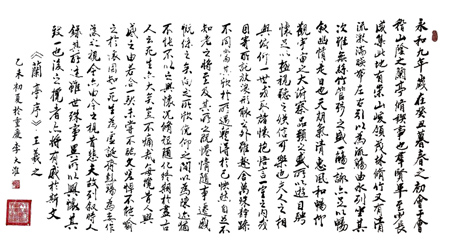 永和九年歲在癸丑暮春之初會于會
稽山陰之蘭亭脩禊事也羣賢畢至少長
咸集此地有崇山峻領茂林脩竹又有清
流激湍暎帶左右引以為流觴曲水列坐其
次雖無絲竹管弦之盛一觴一詠亦足以暢
叙幽情是日也天朗氣清惠風和暢仰
觀宇宙之大俯察品類之盛所以遊目騁
懷足以極視聽之娛信可樂也夫人之相
與俯仰一世或取諸懷抱悟言一室之內或
因寄所託放浪形骸之外雖趣舍萬殊靜躁
不同當其欣於所遇暫得於己快然自足不
知老之將至及其所之既惓情隨事遷感
慨係之矣向之所欣俛仰之間以為陳迹猶
不能不以之興懷況脩短隨化終期於盡古
人云死生亦大矣豈不痛哉每攬昔人興
感之由若合一契未嘗不臨文嗟悼不能喻
之於懷固知一死生為虛誕齊彭殤為妄作
後之視今亦由今之視昔悲夫故列叙時人
錄其所述雖世殊事異所以興懷其
致一也後之攬者亦將有感於斯文
《蘭亭序》王羲之
乙未初夏於重慶李